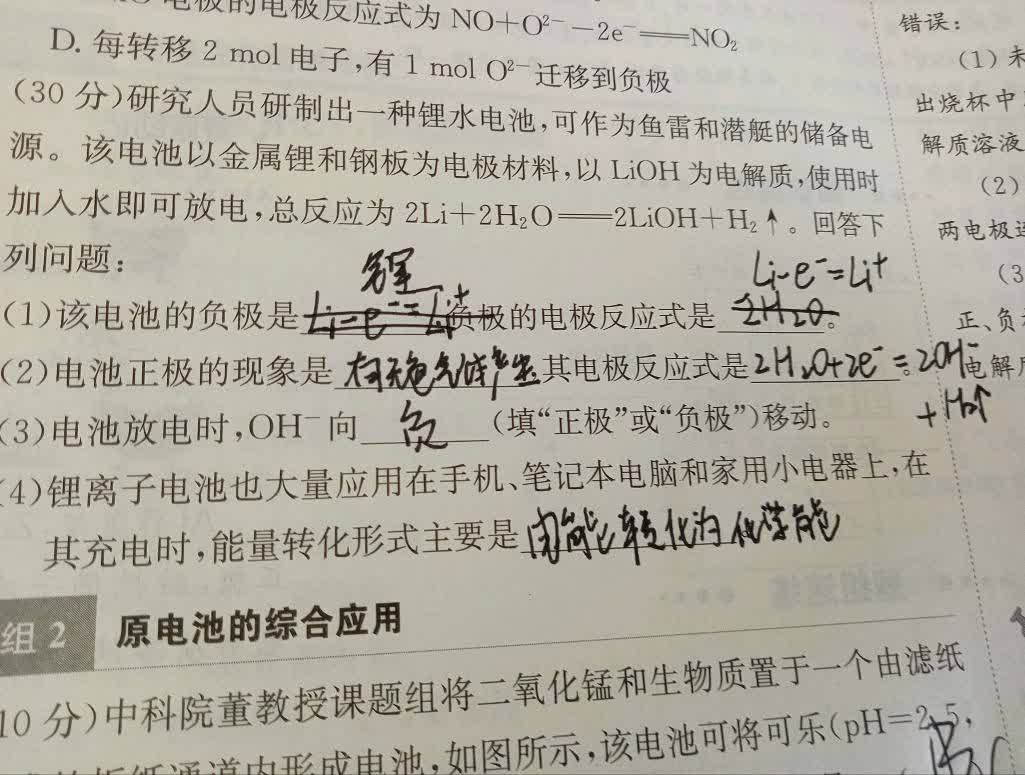 电极的电极反应式为 NO+O²⁻-2e⁻══NO₂
D. 每转移 2 mol 电子,有 1 mol O²⁻ 迁移到负极
(30 分)研究人员研制出一种锂水电池,可作为鱼雷和潜艇的储备电
源。该电池以金属锂和钢板为电极材料,以 LiOH 为电解质,使用时
加入水即可放电,总反应为 2Li+2H₂O══2LiOH+H₂↑。回答下
列问题:
锂 Li-e⁻=Li⁺
(1)该电池的负极是 Li-e⁻=Li⁺ 负极的电极反应式是 2H₂O。
(2)电池正极的现象是 有无色气体产生 其电极反应式是 2H₂O+2e⁻=2OH⁻
+H₂↑
(3)电池放电时,OH⁻向 负 (填“正极”或“负极”)移动。
(4)锂离子电池也大量应用在手机、笔记本电脑和家用小电器上,在
其充电时,能量转化形式主要是 电能转化为化学能
组 2 原电池的综合应用
10 分)中科院董教授课题组将二氧化锰和生物质置于一个由滤纸
形成电池,如图所示,该电池可将可乐(pH=2.5,
错误:
(1)未
出烧杯中
解质溶液
(2)
两电极
(3
正、负
电解